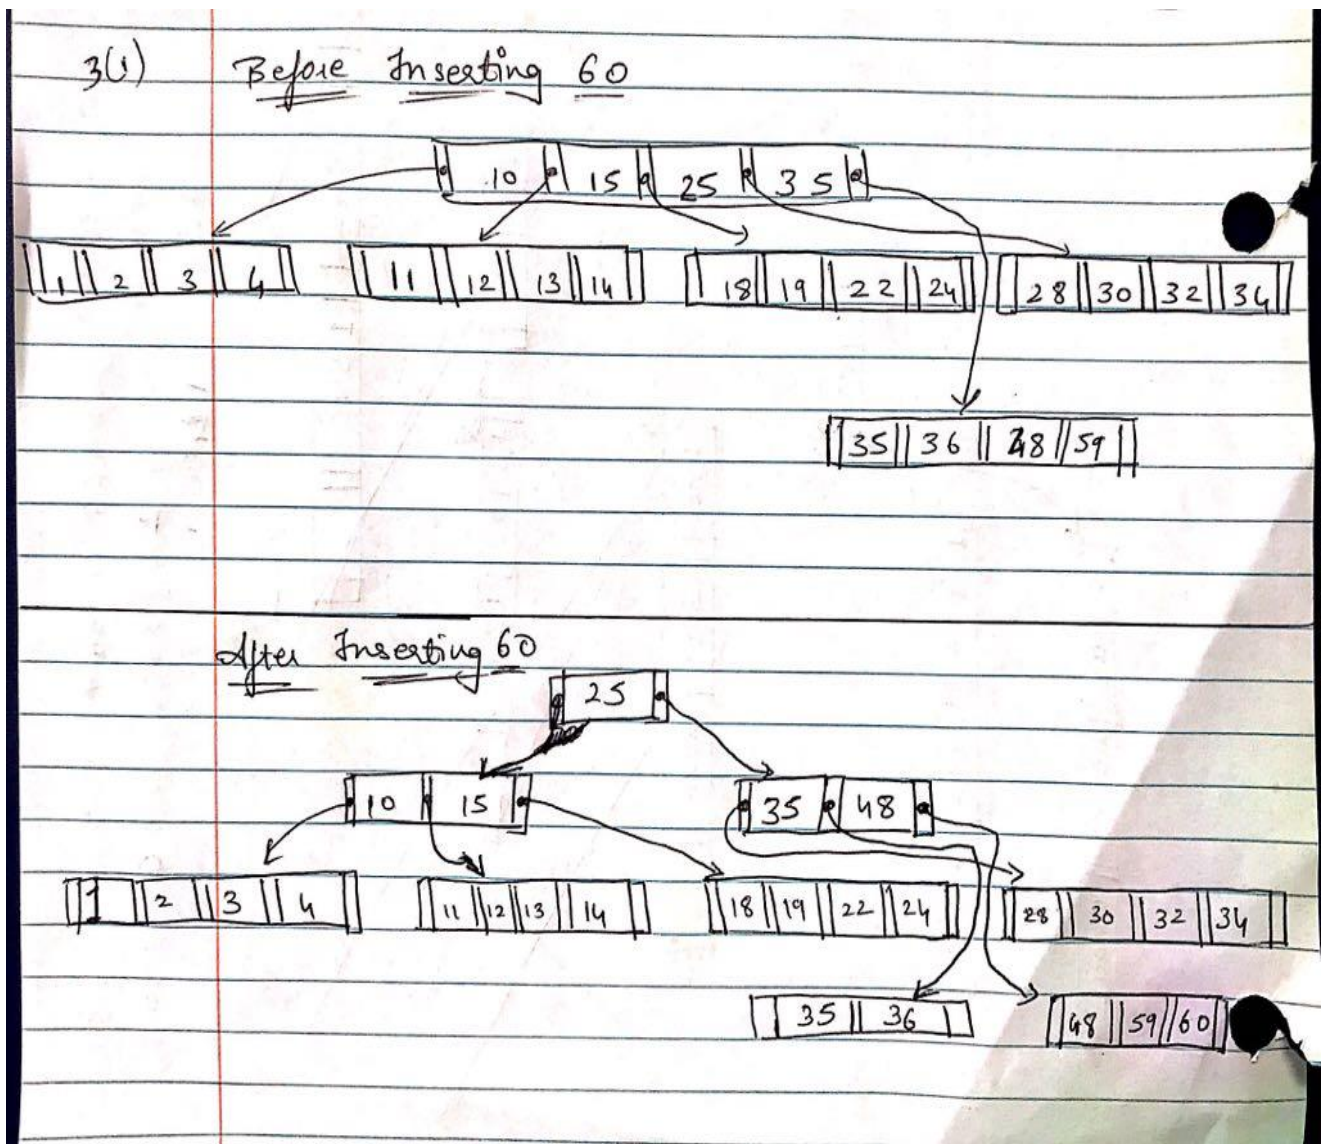 3(i) Before Inserting 60
10 15 25 35
1 2 3 4 11 12 13 14 18 19 22 24 28 30 32 34
35 36 48 59
After Inserting 60
25
10 15 35 48
1 2 3 4 11 12 13 14 18 19 22 24 28 30 32 34
35 36 48 59 60